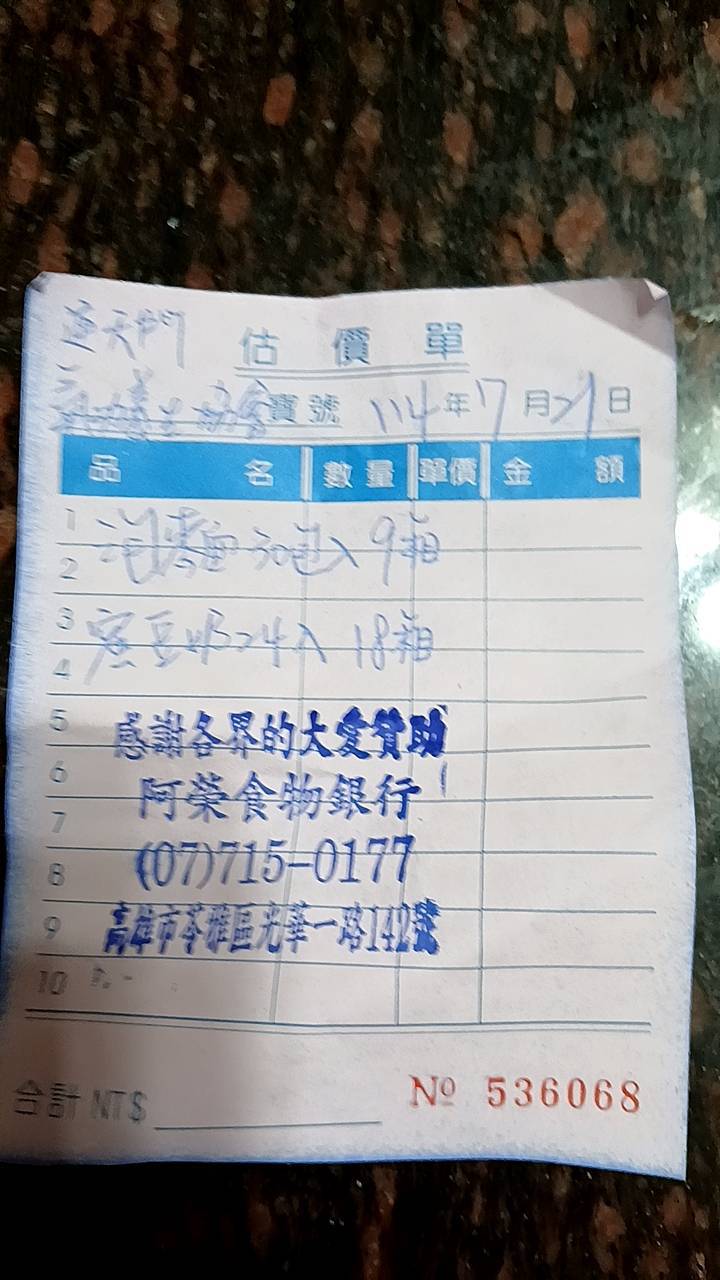 估價單
寶號 114年7月21日
品名 數量 單價 金額
1 泡麵 30包入 9箱
2
3 蜜豆奶24入 18箱
4
5 感謝各界的大愛贊助
6 阿榮食物銀行
7
8 (07)715-0177
9 高雄市苓雅區光華一路142號
10
合計 NT$
№ 536068